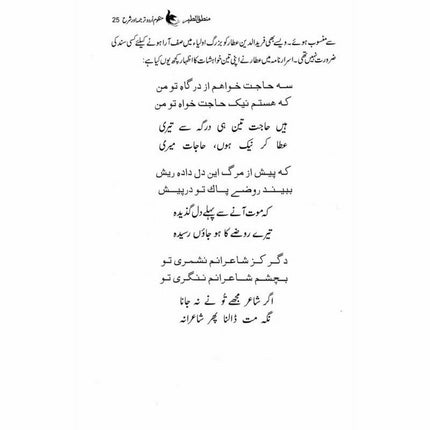 منطق الطیر منظوم اُردو ترجمہ اور شرح 25
سے منسوب ہوئے۔ ویسے بھی فرید الدین عطار کو بزرگ اولیاء میں صف آرا ہونے کیلئے کسی سند کی
ضرورت نہیں تھی۔ اسرار نامہ میں عطار نے اپنی تین خواہشات کا اظہار کچھ یوں کیا ہے:
سہ حاجت خواهم از درگاهِ تو من
که هستم نیک حاجت خواه تو من
ہیں حاجت تین ہی درگہ سے تیری
عطا کر نیک ہوں، حاجات میری
که پیش از مرگ این دل داده ریش
ببیند روضے پاك تو درپیش
کہ موت آنے سے پہلے دل گذیدہ
تیرے روضے کا ہو جاؤں رسیدہ
دگر کز شاعرانم نشمری تو
بچشم شاعرانم ننگری تو
اگر شاعر مجھے تُو نے نہ جانا
نگہ مت ڈالنا پھر شاعرانہ